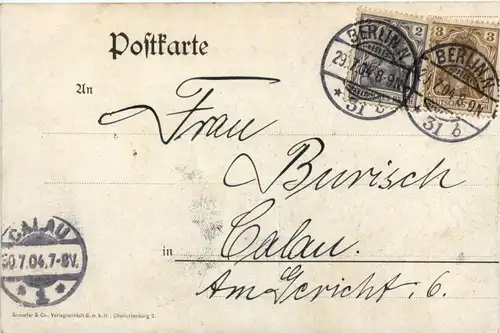 Postkarte
2
3
BERLIN, N.
29.7.04.8-9N.
* 31 b
BERLIN, N.
29.7.04.8-9N.
31 b
An
Frau
Burisch
in Calau.
Am Gericht. 6.
CALAU
30.7.04.7-8V.
* 1 *
& Co., Verlagsanstalt G. m. b. H., Charlottenburg 2.